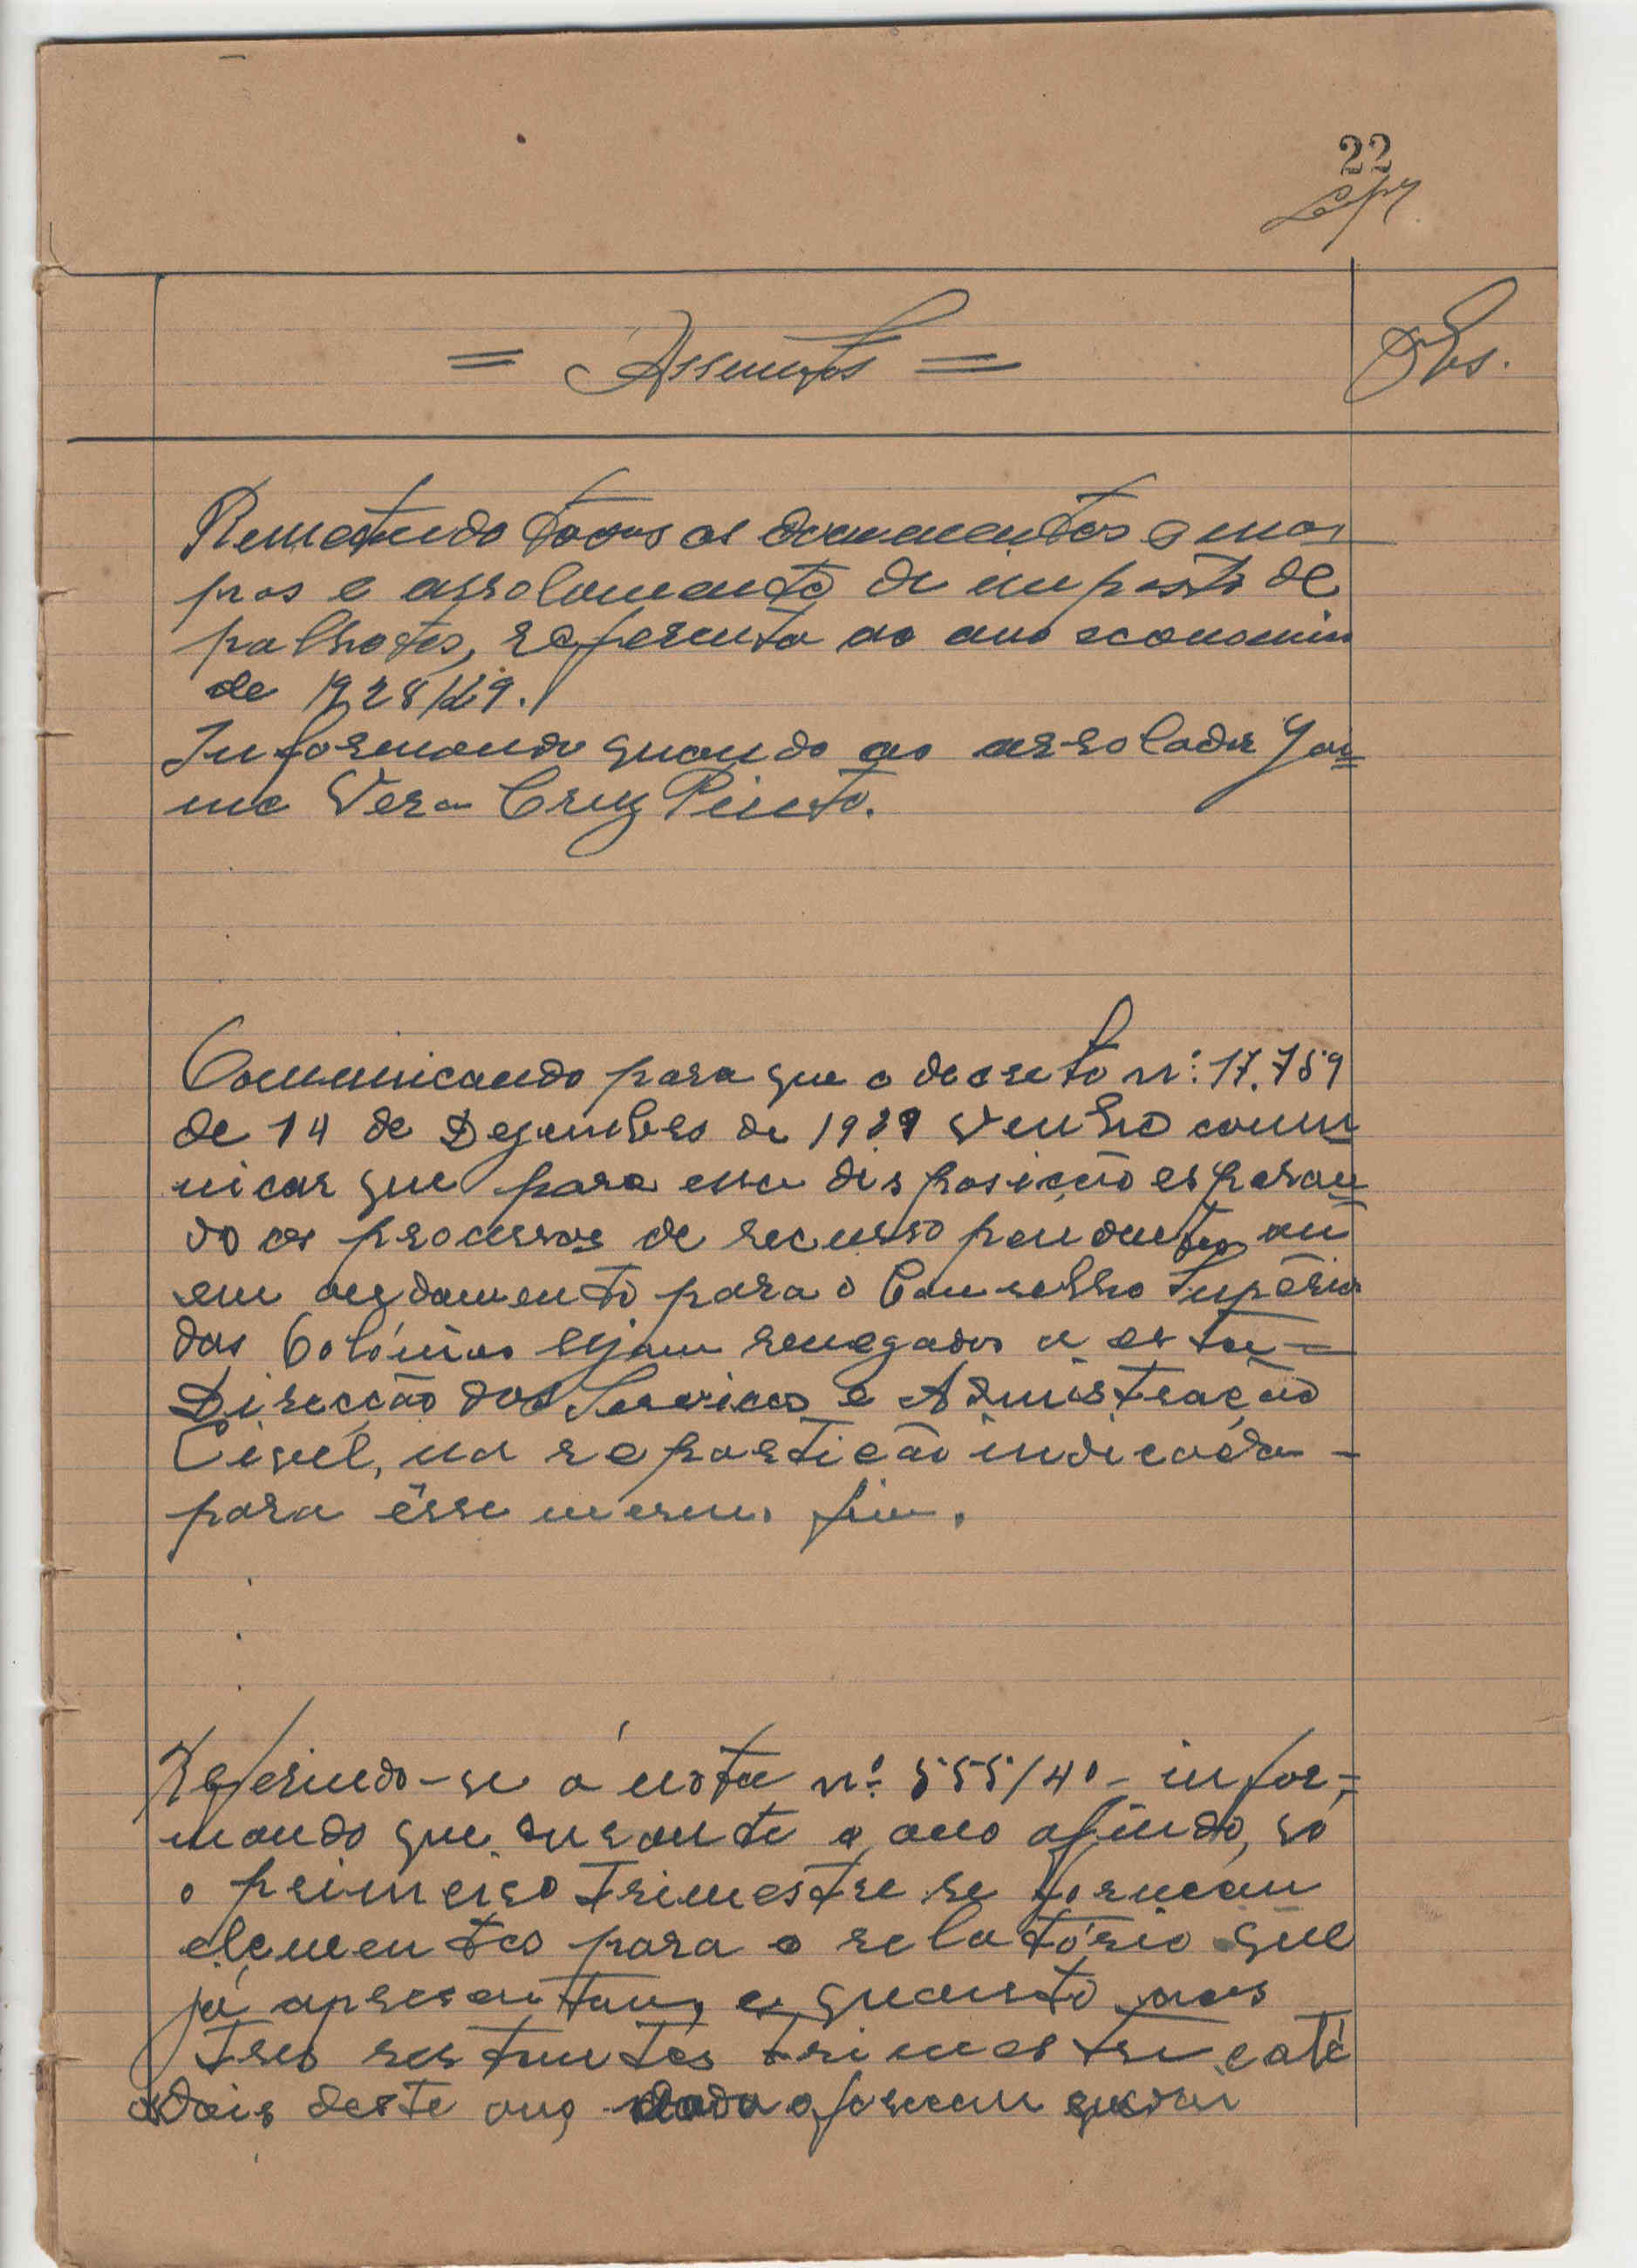 22
= Assuntos =
Obs.
Remetendo todos os documentos e ma-
pas e arrolamento de imposto de
palhotas, referente ao ano economico
de 1928/29.
Informando quando ao arrolador Jai=
me Vera Cruz Pinto.
Comunicando para que o decreto nº: 17.759
de 14 de Dezembro de 1929 venho comu
nicar que para essa disposição esperan
do os processos de recurso pendentes ou
em andamento para o Conselho Supério
das Colónias sejam renegados a esta =
Direcção dos Serviços e Admistração
Civil, na repartição indicada -
para êsse mesmo fim.
Referindo-se á nota nº 555/40 - infor-
mando que durante o ano afindo, só
o primeiro trimestre se forneceu
elementos para o relatório que
já apresentou, e quanto aos
tres restantes trimestre e até
dois deste ano,